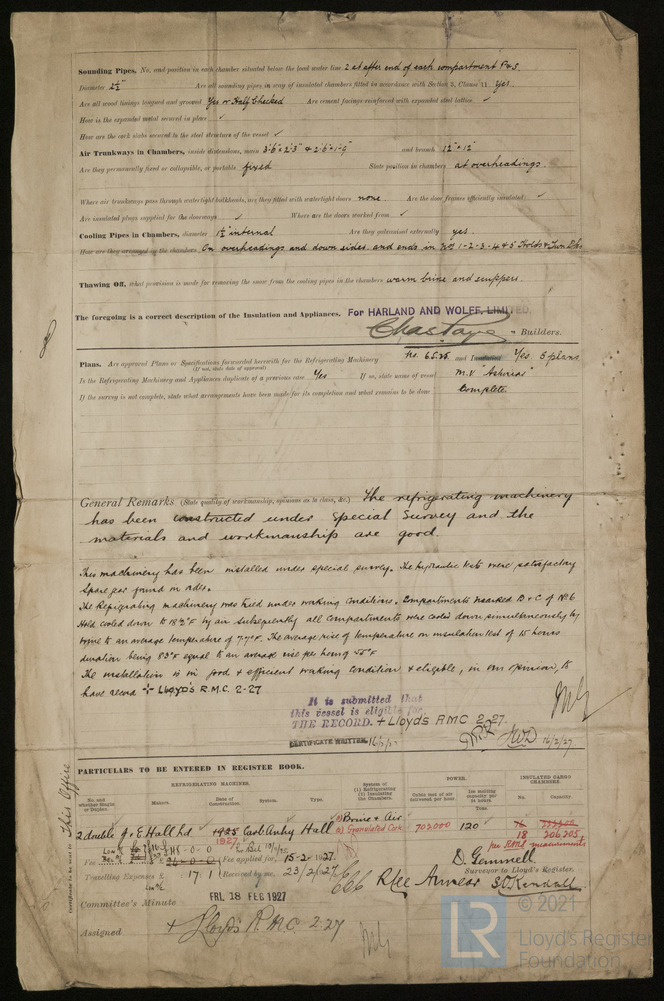 Sounding Pipes, No. and position in each chamber situated below the load water line 2 at after end of each compartment P & S.
Diameter 2½" Are all sounding pipes in way of insulated chambers fitted in accordance with Section 3, Clause 11. yes.
Are all wood linings tongued and grooved Yes or Half Checked Are cement facings reinforced with expanded steel lattice ✓
How is the expanded metal secured in place ✓
How are the cork slabs secured to the steel structure of the vessel ✓
Air Trunkways in Chambers, inside dimensions, main 3'6" × 2'3" & 2'6" × 1'9" and branch 12" × 12"
Are they permanently fixed or collapsible, or portable fixed State position in chambers at overheadings.
Where air trunkways pass through watertight bulkheads, are they fitted with watertight doors none. Are the door frames efficiently insulated ✓
Are insulated plugs supplied for the doorways ✓ Where are the doors worked from ✓
Cooling Pipes in Chambers, diameter 1½" internal Are they galvanised externally yes.
How are they arranged in the chambers On overheadings and down sides and ends in Nos 1-2-3-4 & 5 Holds & Tween Dks.
Thawing Off, what provision is made for removing the snow from the cooling pipes in the chambers warm brine and scuppers.
The foregoing is a correct description of the Insulation and Appliances. For HARLAND AND WOLFF, LIMITED.
Chas Payne Builders.
Plans. Are approved Plans or Specifications forwarded herewith for the Refrigerating Machinery and Insulation Yes 5 plans
(If not, state date of approval)
Is the Refrigerating Machinery and Appliances duplicate of a previous case Yes If so, state name of vessel M.V. "Asturias"
If the survey is not complete, state what arrangements have been made for its completion and what remains to be done Complete.
General Remarks (State quality of workmanship, opinions as to class, &c.) The refrigerating machinery
has been constructed under special survey and the
materials and workmanship are good.
This machinery has been installed under special survey. The hydraulic tests were satisfactory
Spare gear found in order.
The Refrigerating machinery was tried under working conditions. Compartments marked B & C of No 6
Hold cooled down to 18½°F by air subsequently all compartments were cooled down simultaneously by
brine to an average temperature of 7.7°F. The average rise of temperature on insulation test of 15 hours
duration being 8.3°F equal to an average rise per hour of .55°F
The installation is in good & efficient working condition & eligible, in our opinion, to
have record + Lloyd's R.M.C. 2-27
It is submitted that
this vessel is eligible for
THE RECORD. + Lloyds RMC 2-27.
CERTIFICATE WRITTEN 16/2/27
16/2/27
This Office
PARTICULARS TO BE ENTERED IN REGISTER BOOK.
REFRIGERATING MACHINES.
System of (1) Refrigerating (2) Insulating the Chambers.
POWER.
INSULATED CARGO CHAMBERS.
No. and whether Single or Duplex. Makers. Date of Construction. System. Type. Cubic feet of air delivered per hour. Ice melting capacity per 24 hours Tons. No. Capacity.
2 double J & E Hall Ld 1925 Carb. Anhy. Hall (1) Brine & Air 702000 120
1927 (2) Granulated Cork 18 206205
per RMS measurements
Fee Fee applied for, 15-2-1927.
Travelling Expenses £ 17.1 Received by me, 23/2/1927
D. Gemmell.
Surveyor to Lloyd's Register.
R Lee Amess S.O. Kendall
Committee's Minute FRI. 18 FEB 1927
Assigned + Lloyds R.M.C. 2-27
LR
© 2021
Lloyd's Register
Foundation